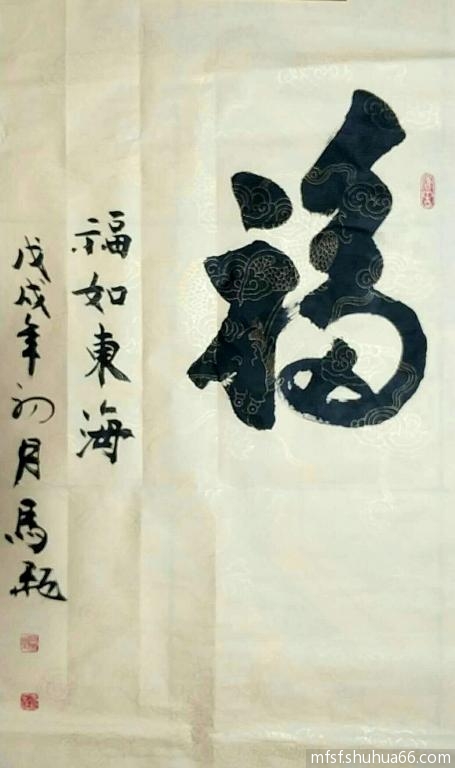 福
福如東海
戊戌年初月馬
mfsfshuhua66.com